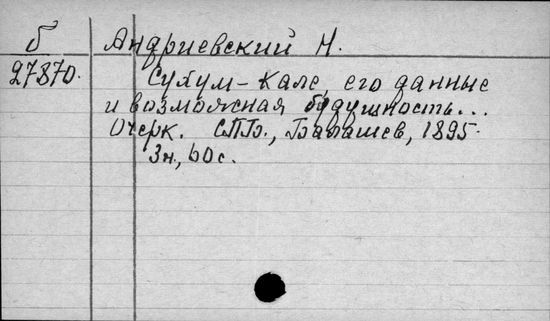 б Андриевский Н.
27870. Сухум-Кале, его данные
и возможная будущность...
Очерк. СПБ., Балашев, 1895.
3н., 60 с.